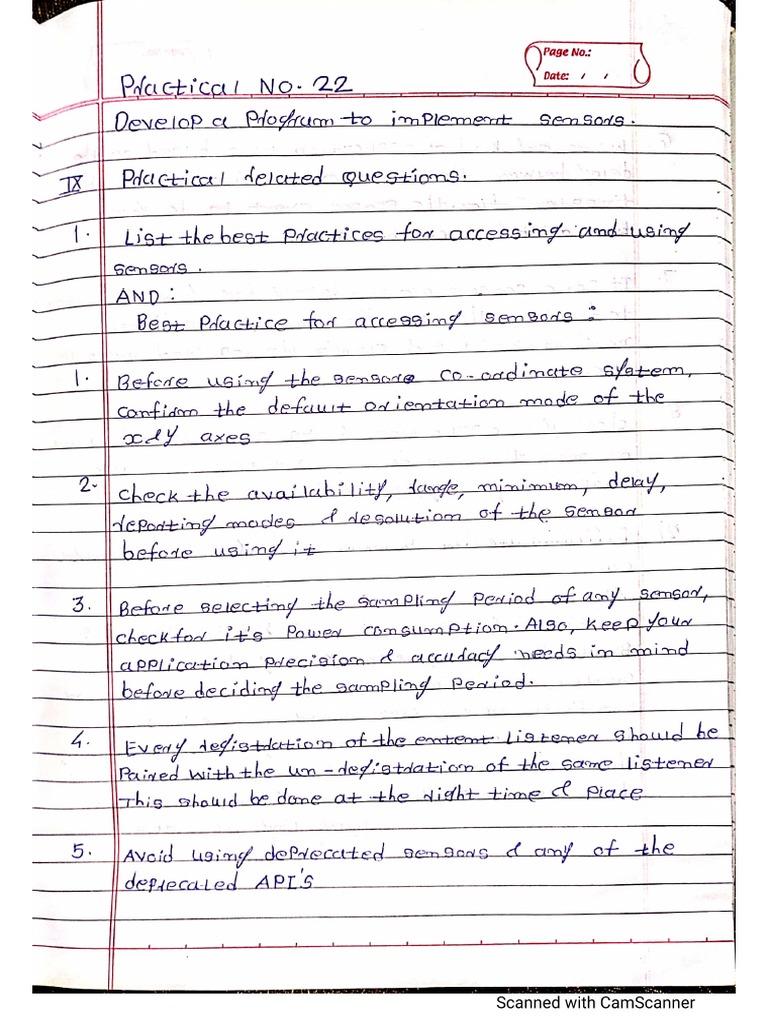 Page No.:
Date: / /
Practical No. 22
Develop a Program to implement sensors.
IX Practical related questions.
1. List the best Practices for accessing and using
sensors.
AND:
Best Practice for accessing sensors:
1. Before using the sensors co-ordinate system,
confirm the default orientation mode of the
x & y axes
2. Check the availability, range, minimum, delay,
reporting modes & resolution of the sensor
before using it
3. Before selecting the sampling Period of any sensor,
check for it's Power consumption. Also, keep your
application precision & accuracy needs in mind
before deciding the sampling Period.
4. Every registration of the entent Listener should be
Paired with the un-registration of the same listener
This should be done at the right time & Place
5. Avoid using deprecated sensors & any of the
deprecated API's
Scanned with CamScanner